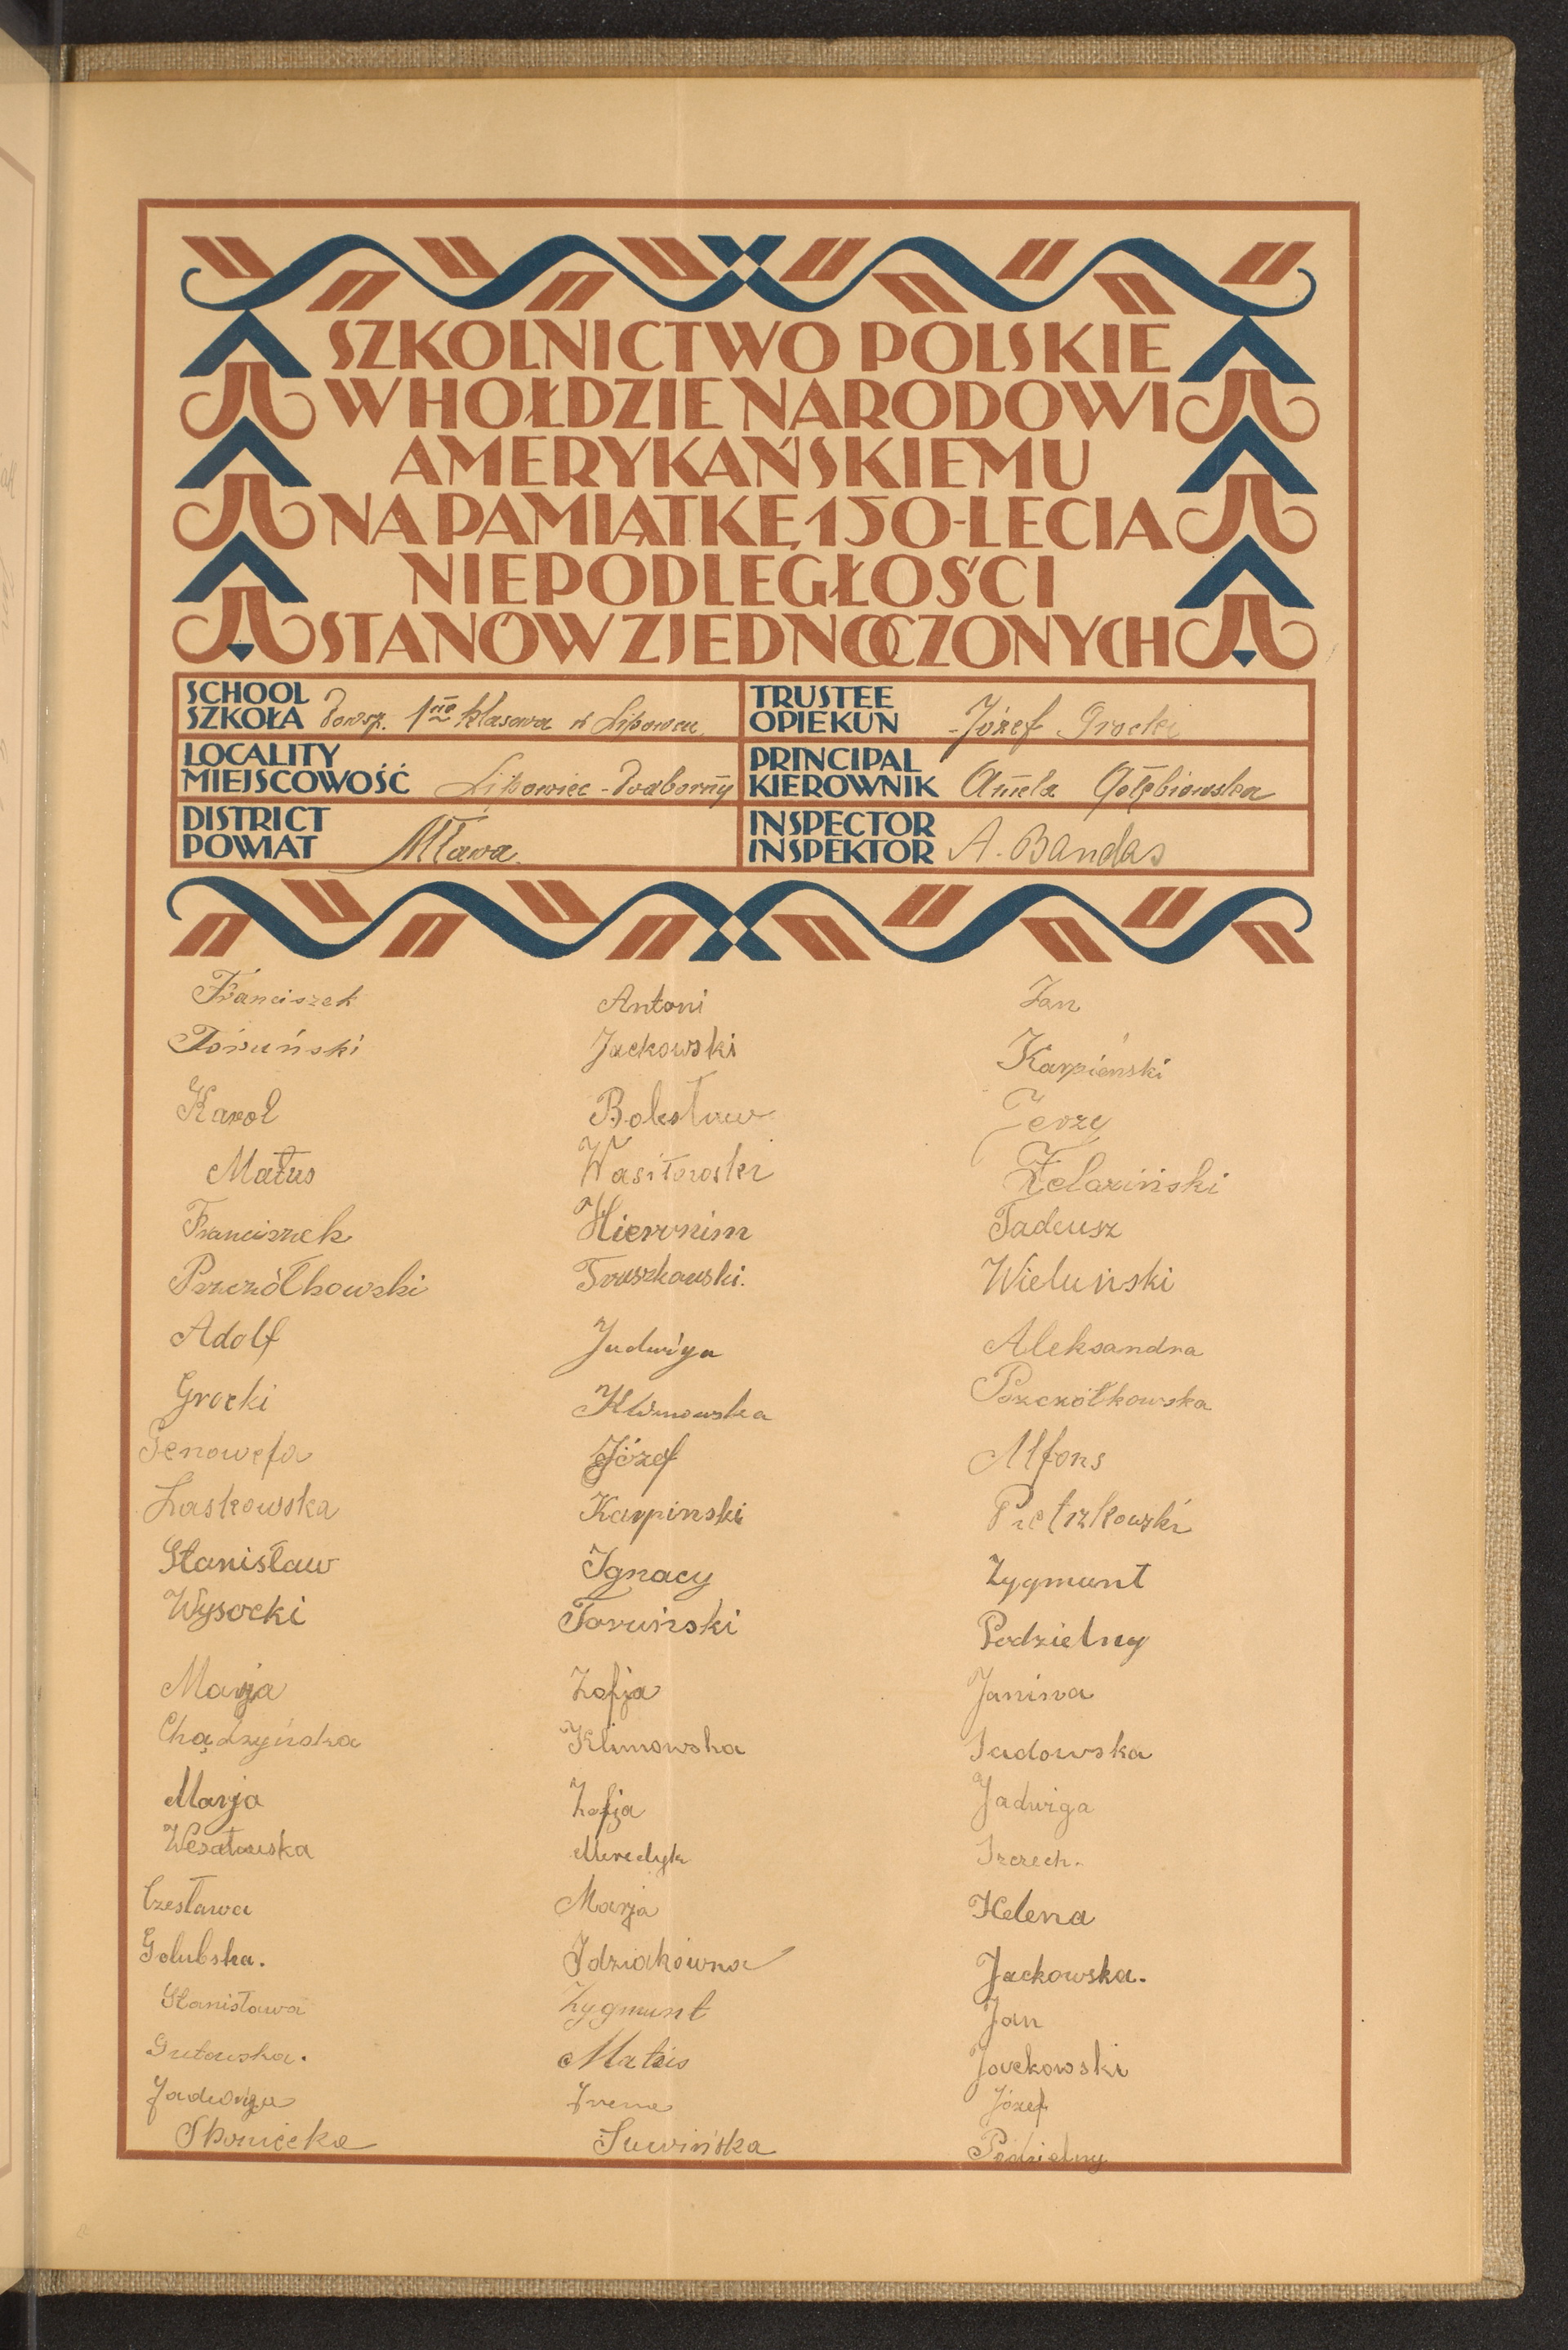 SZKOLNICTWO POLSKIE
W HOŁDZIE NARODOWI
AMERYKAŃSKIEMU
NA PAMIĄTKĘ 150-LECIA
NIEPODLEGŁOŚCI
STANÓW ZJEDNOCZONYCH
SCHOOL
SZKOŁA Powsz. 1no klasowa w Lipowcu
TRUSTEE
OPIEKUN Józef Grocki
LOCALITY
MIEJSCOWOŚĆ Lipowiec-Podborny
PRINCIPAL
KIEROWNIK Aniela Gołębiowska
DISTRICT
POWIAT Mława
INSPECTOR
INSPEKTOR A. Bandas
Franciszek
Toruński
Karol
Matus
Franciszek
Pszczółkowski
Adolf
Grocki
Genowefa
Laskowska
Stanisław
Wysocki
Marja
Chądzyńska
Marja
Wesołowska
Czesława
Golubska.
Stanisława
Gutowska.
Jadwiga
Słoniecka
Antoni
Jackowski
Bolesław
Wasiłowski
Hieronim
Truszkowski.
Jadwiga
Klimowska
Józef
Karpinski
Ignacy
Toruński
Zofja
Klimowska
Zofja
Meredyk
Marja
Idziakówna
Zygmunt
Matus
Irena
Suwińska
Jan
Karpiński
Jerzy
Żelaziński
Tadeusz
Wieluński
Aleksandra
Pszczółkowska
Alfons
Pietrzkowski
Zygmunt
Podzielny
Janina
Sadowska
Jadwiga
Szczech.
Helena
Jackowska.
Jan
Jackowski
Józef
Podzielny